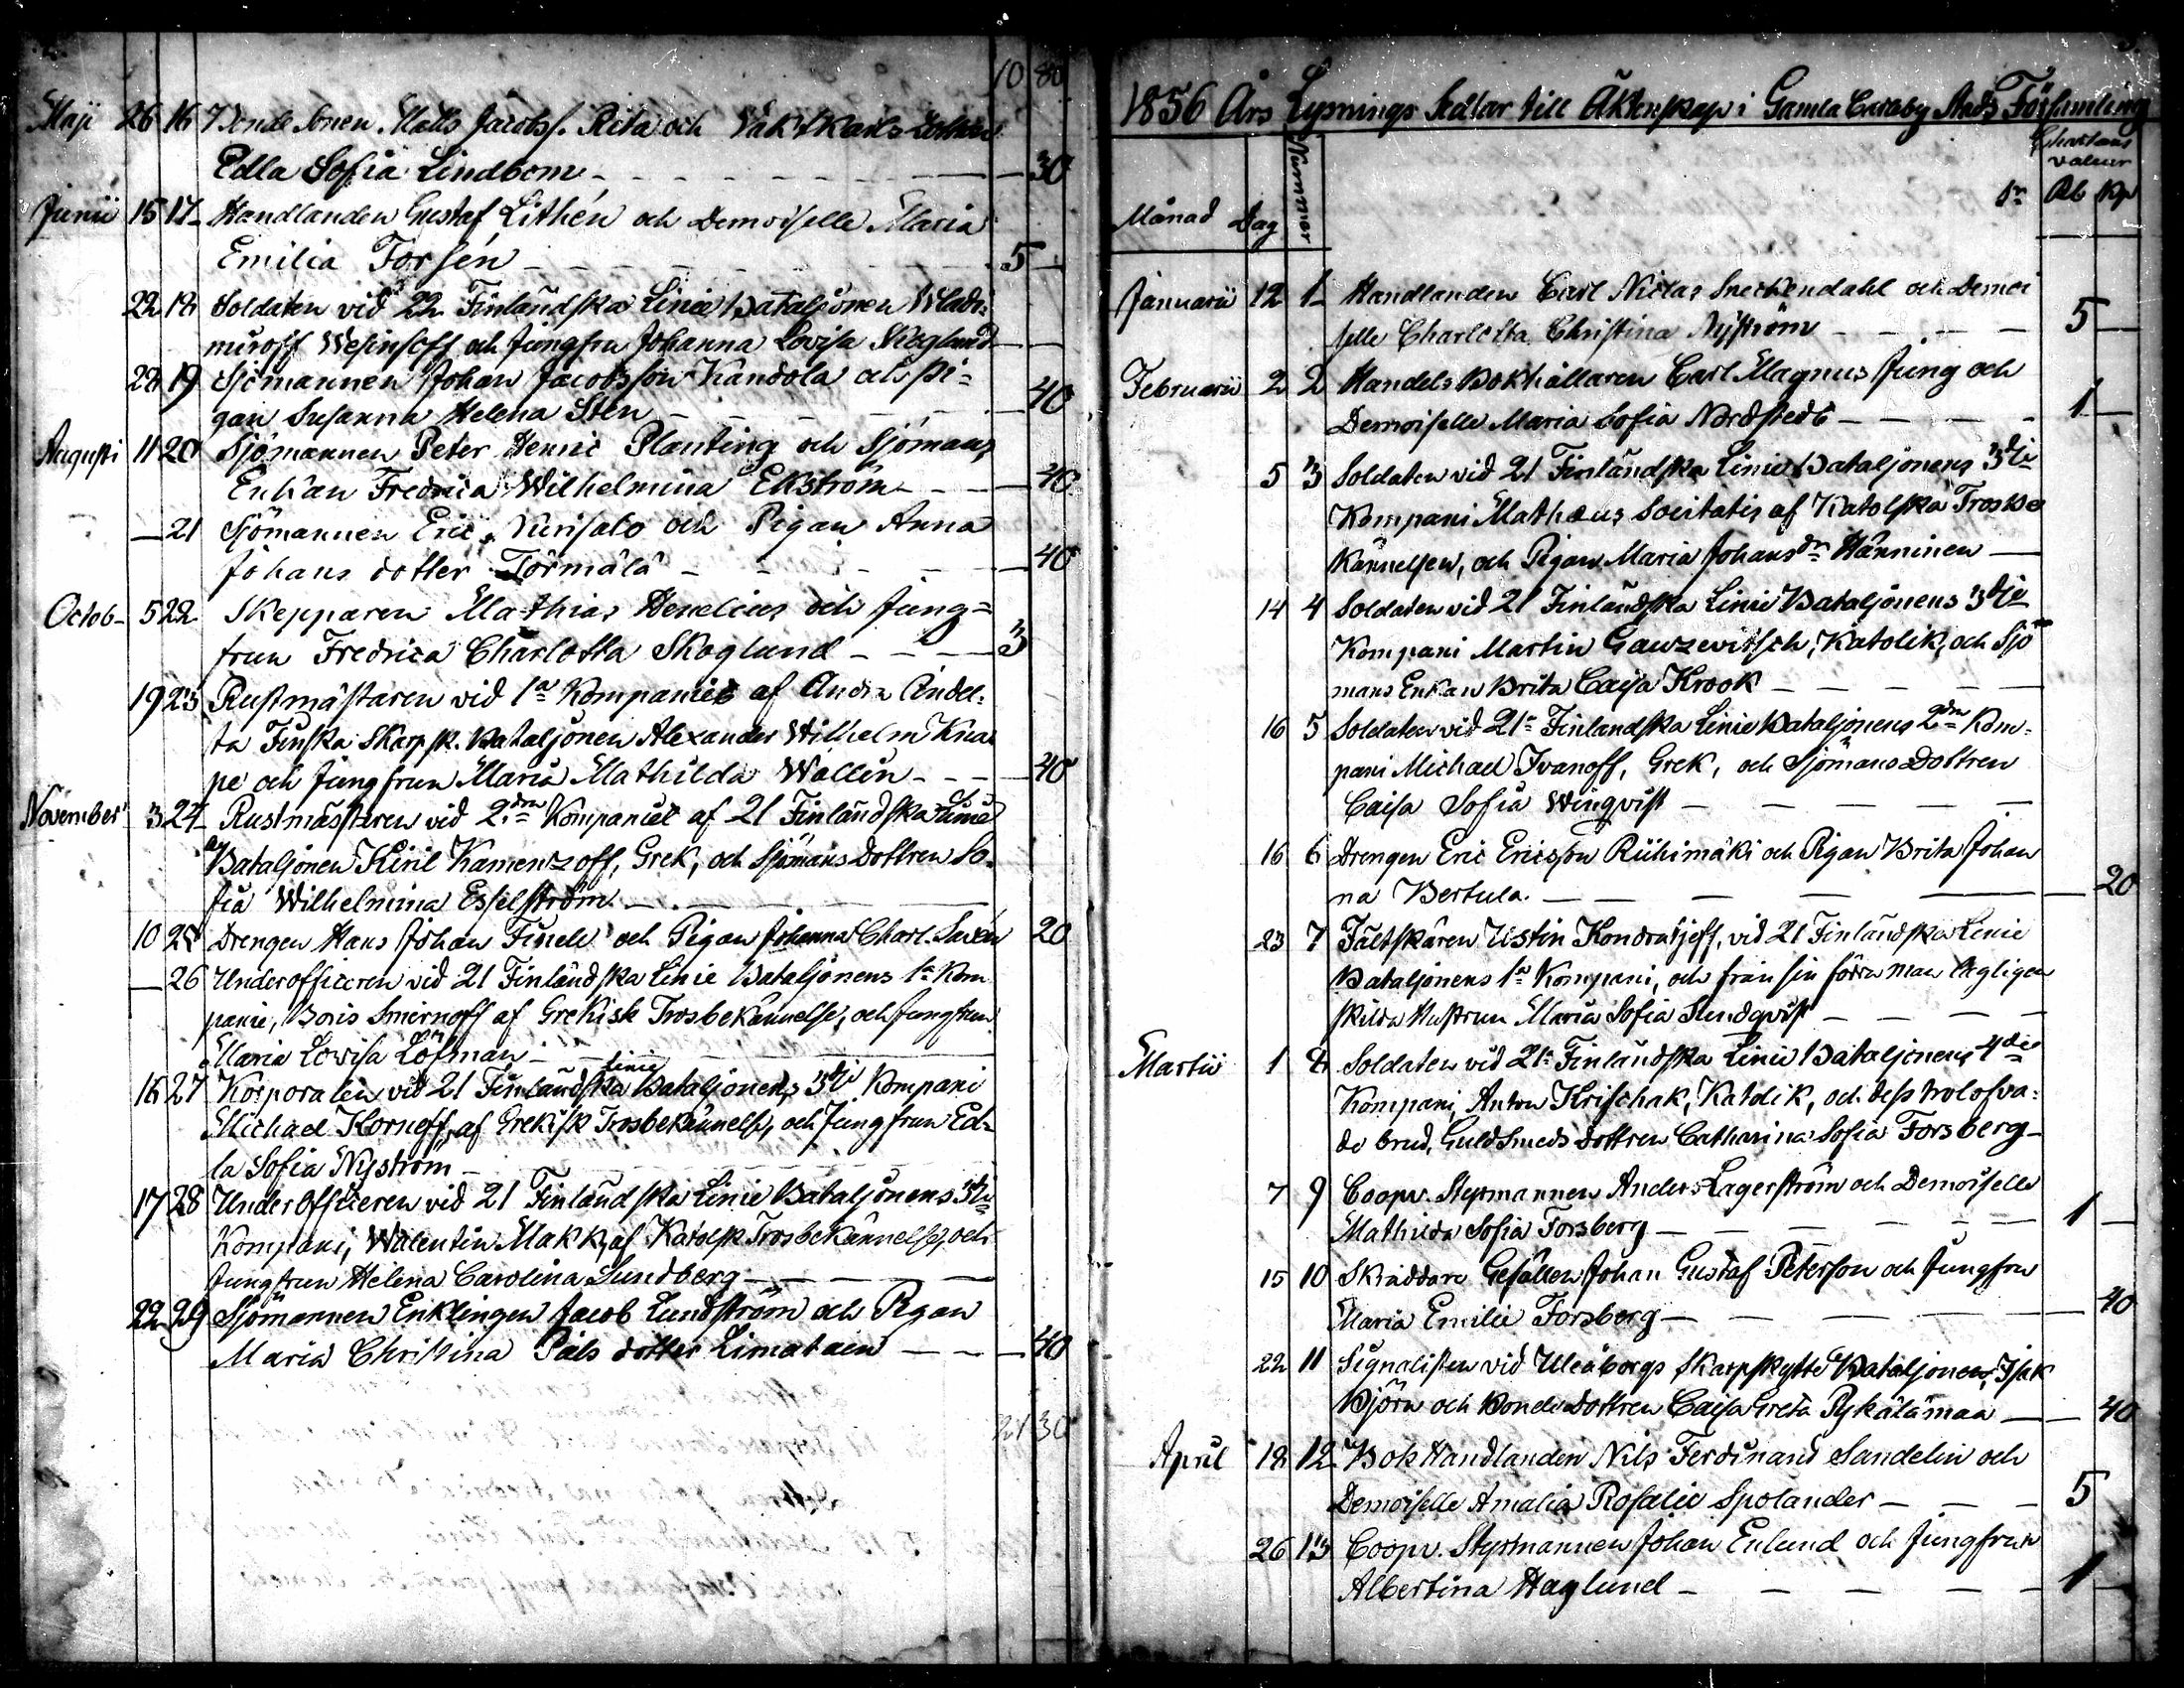 10 80
Maji 26 16 Bonde Sonen Matts Jacobss. Rita och Vaktkarls
Edla Sofia Lindbom - 30
Junii 15 17 Handlanden Gustaf Lithén och Demoiselle Maria
Emilia Forsén - 5 -
22 18 Soldaten vid 22 Finländska Linie Bataljonen Wladi-
miroff och Jungfru Johanna Lovisa Skoglund
28 19 Sjömannen Johan Jacobsson Kandola och Pi-
gan Susanna Helena Sten - 40
Augusti 11 20 Sjömannen Peter Henric Planting och Sjömans
Enkan Fredrica Wilhelmina Ekström - 40
- 21 Sjömannen Eric och Pigan Anna
Johans dotter Törmälä - 40
Octob- 5 22 Skepparen Mathias Henelius och Jung-
frun Fredrica Charlotta Skoglund - 3
19 23 Rustmästaren vid 1a Kompaniet af Andra Indel-
ta Finska Skarpsk. Bataljonen Alexander Wilhelm Kna-
pe och Jungfrun Maria Mathilda Wallin - 40
November 3 24 Rustmästaren vid 2dra Kompaniet af 21 Finländska Linie
Bataljonen Kiril Kamenzoff, Grek, och Sjömans Dottren So-
fia Wilhelmina Esselström -
10 25 Drengen Hans Johan Finell och Pigan Johanna Charl. Savén 20
- 26 Underofficeren vid 21 Finländska Linie Bataljonens 1a Kom
panie, Boris Smirnoff af Grekisk Trosbekännelse, och Jungfrun
Maria Lowisa Löfman -
16 27 Korporalen vid 21 Finländska Linie Bataljonens 3die Kompani
Michael Korneff, af Grekisk Trosbekännelse, och Jungfrun Ed-
la Sofia Nyström -
17 28 Underofficeren vid 21 Finländska Linie Bataljonens 3die
Kompani, Walentin Makk, af Katolsk Trosbekännelse, och
Jungfrun Helena Carolina Sundberg -
22 29 Sjömannen Enklingen Jacob Lundström och Pigan
Maria Christina Påls dotter Limatain - 40
21 30
1856 Års Lysnings Sedlar till Äktenskap i Gamla Carleby Stads Församling
Chartans
valeur
Månad Dag Nummer Sr Rb Kp
Januarii 12 1 Handlanden Carl Niclas Sneckendahl och Demoi
selle Charlotta Christina Nyström - 5 -
Februarii 2 2 Handels Bokhållaren Carl Magnus Jung och
Demoiselle Maria Sofia Nordstedt - 1 -
5 3 Soldaten vid 21 Finländska Linie Bataljonens 3die
Kompani Mathæus Societatis af Katolska Trosbe
kännelsen, och Pigan Maria Johansdr Hänninen -
14 4 Soldaten vid 21 Finländska Linie Bataljonens 3die
Kompani Martin Gauzewitsch, Katolik, och Sjö
mans Enkan Brita Caisa Krook -
16 5 Soldaten vid 21a Finländska Linie Bataljonens 2dra Kom-
pani Michael Ivanoff, Grek, och Sjömans Dottren
Caisa Sofia Wingqvist -
16 6 Drengen Eric Ericsson Riihimäki och Pigan Brita Johan
na Bertula. - 20
23 7 Fältskären Ustin Kondratjeff, vid 21 Finländska Linie
Bataljonens 1a Kompani, och från sin förra man lagligen
skilda Hustrun Maria Sofia Sundqvist -
Martii 1 8 Soldaten vid 21a Finländska Linie Bataljonens 4de
Kompani, Anton Krischak, Katolik, och dess trolofva-
de brud, Guldsmeds dottren Catharina Sofia Forsberg -
7 9 Coopv. Styrmannen Anders Lagerström och Demoiselle
Mathilda Sofia Forsberg - 1 -
15 10 Skräddare Gesällen Johan Gustaf Peterson och Jungfru
Maria Emilie Forsberg - 40
22 11 Signalisten vid Uleåborgs Skarpskytte Bataljonen, Isak
Björn och Bonde Dottren Caisa Greta Pykälämaa - 40
April 18 12 Bok Handlanden Nils Ferdinand Sandelin och
Demoiselle Amalia Rosalie Spolander - 5
26 13 Coopv. Styrmannen Johan Enlund och Jungfrun
Albertina Haglund - 1 -